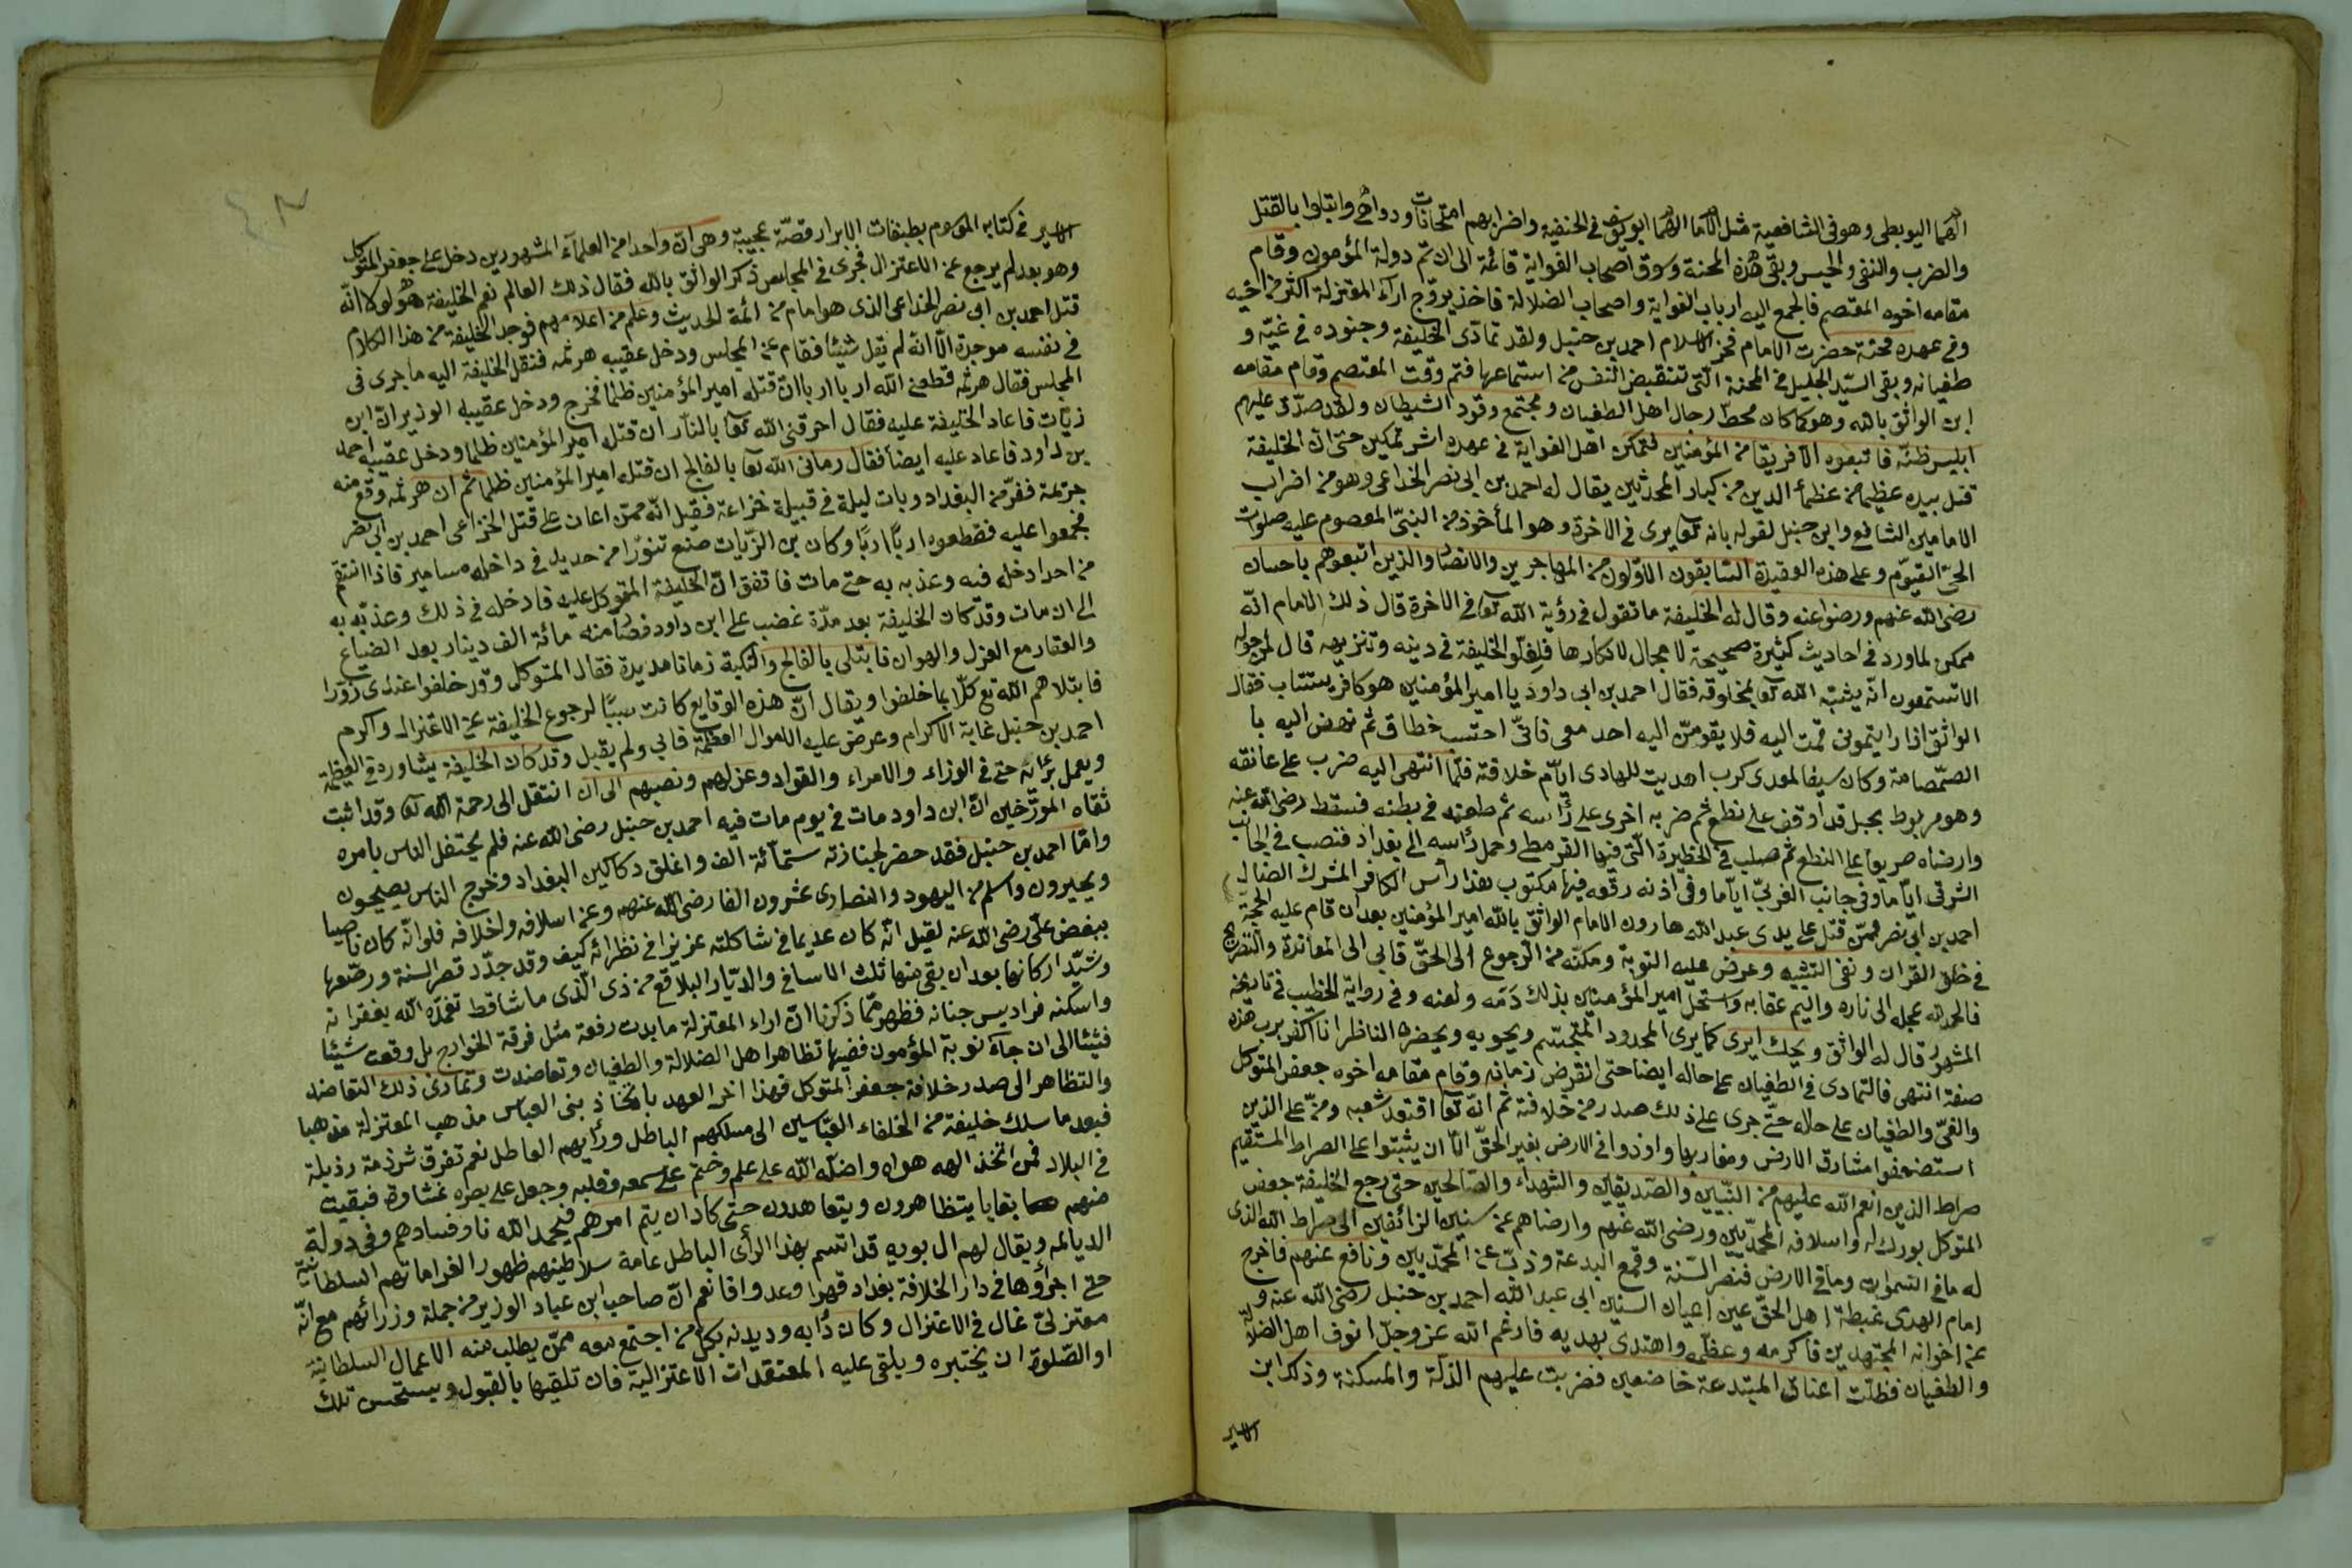 الهما اليوبطى وهو فى الشافعية مثل الاما الهما ابو يوسف فى الحنفية واضرابهم امتحانات ودواهى وابتلوا بالقتل
والضرب والنفى والحبس وبقى هذه المحنة وسوق اصحاب الغواية قائمة الى ان تم دولة المؤمون وقام
مقامه اخوه المعتصم فالجمع اليه ارباب الغواية واصحاب الضلالة فاخذ يروّج اراء المعتزلة اكثر من اخيه
وفى عهده محنة حضرت الامام فخر الاسلام احمد بن حنبل ولقد تمادى الخليفة وجنوده فى غيّه و
طغيانه وبقى السيّد الجليل فى المحنة الّتى تنقبض النفس من استماعها فتم وقت المعتصم وقام مقامه
ابن الواثق بالله وهو كما كان محطّ رجال اهل الطغيان ومجتمع وقود الشيطان ولقد صدّق عليهم
ابليس ظنّه فاتبعوه الا فريقا من المؤمنين فتمكن اهل الغواية فى عهده اشر تمكين حتى ان الخليفة
قتل بيده عظيما من عظماء الدين من كبار المحدثين يقال له احمد بن ابى نصر الخذاعى وهو من اضراب
الامامين الشافعى وابن حنبل لقوله بانه تعا يرى فى الاخرة وهو المأخوذ من النبىّ المعصوم عليه صلوات
الحىّ القيّوم وعلى هذه العقيدة السّابقون الاوّلون من المهاجرين والانصار والذين اتبعوهم باحسان
رضى الله عنهم ورضوا عنه وقال له الخليفة ما تقول فى رؤية الله تعا فى الاخرة قال ذلك الامام انّه
ممكن لما ورد فى احاديث كثيرة صحيحة لا مجال لانكارها فلغلّو الخليفة فى دينه وتنزيهه قال لمن حوله
الا تستمعون انّه يشبّه الله تعا بمخلوقه فقال احمد بن ابى داود يا امير المؤمنين هو كافر يستتاب فقال
الواثق اذا رايتمونى قمت اليه فلا يقومنّ اليه احد معى فانّى احتسب خطاى ثم نهض اليه با
الصّمصامة وكان سيفا لمعدى كرب اهديت للهادى ايّام خلافته فلمّا انتهى اليه ضرب على عاتقه
وهو مربوط بحبل قد اوقف على نطع ثم ضربه اخرى على رأسه ثم طعنه فى بطنه فسقط رضى الله عنه
وارضاه صريعا على النطع ثم صلب فى الحظيرة الّتى فيها القرمطى وحمل رأسه الى بغداد فنصب فى الجانب
الشرقى ايّاما وفى جانب الغربىّ ايّاما وفى اذنه رقعه فيها مكتوب هذا رأس الكافر المشرك الضال
احمد بن ابى نصر ممّن قتل على يدى عبد الله هارون الامام الواثق بالله امير المؤمنين بعد ان قام عليه الحجّة
فى خلق القران ونفى التشبيه وعرض عليه التوبة ومكنّه من الرجوع الى الحقّ فابى الى المعاندة والتصريح
فالحمد لله عجله الى ناره واليم عقابه واستحل امير المؤمنين بذلك دمه ولعنه وفى رواية الخطيب فى تاريخه
المشهور قال له الواثق ويحك ايرى كما يرى المحدود المتجسّم ويحويه ويحضره الناظر انا اكفر برب هذه
صفته انتهى فالتمادى فى الطغيان على حاله ايضا حتى انقرض زمانه وقام مقامه اخوه جعفر المتوكل
والغىّ والطغيان على حاله حتّى جرى على ذلك صدر من خلافته ثم انّه تعا افتقد شعبه ومنّ على الذين
استضعفوا مشارق الارض ومغاربها واوذوا فى الارض بغير الحقّ الّا ان يثبتوا على الصراط المستقيم
صراط الذين انعم الله عليهم من النّبيّين والصّديقين والشهداء والصّالحين حتى رجع الخليفة جعفر
المتوكل بورك له واسلافه المحدّثين ورضى الله عنهم وارضاهم عن سنين الزائفين الى صراط الله الذى
له ما فى السّموات وما فى الارض فنصر السّنة وقمع البدعة وذبّ عن المحدّثين ونافع عنهم فاخرج
امام الهدى غبطة اهل الحقّ عين اعيان السنيين ابى عبد الله احمد بن حنبل رضى الله عنه و
عن اخوانه المجتهدين فاكرمه وعظّمه واهتدى بهديه فارغم الله عز وجلّ انوف اهل الضلالة
والطغيان فظلّت اعناق المبتدعة خاضعين فضربت عليهم الذلّة والمسكنة وذكر ابن
الاثير
الاثير فى كتابه الموسوم بطبقات الابرار قصّة عجيبة وهى انّ واحدا من العلماء المشهورين دخل على جعفر المتوكل
وهو بعد لم يرجع عن الاعتزال فجرى فى المجلس ذكر الواثق بالله فقال ذلك العالم نعم الخليفة هو لولا انّه
قتل احمد بن ابى نصر الخذاعى الذى هو امام من ائمة الحديث وعلم من اعلامهم فوجد الخليفة من هذا الكلام
فى نفسه موجدة الّا انّه لم يقل شيئا فقام عن المجلس ودخل عقيبه هرثمه فنقل الخليفة اليه ما جرى فى
المجلس فقال هرثمه قطعنى الله اربا اربا ان قتله امير المؤمنين ظلما فخرج ودخل عقيبه الوزير ان ابن
زيّات فاعاد الخليفة عليه فقال احرقنى الله تعا بالنّار ان قتله امير المؤمنين ظلما ودخل عقيبه احمد
بن داود فاعاد عليه ايضا فقال رمانى الله تعا بالفالج ان قتله امير المؤمنين ظلما ثم ان هرثمه وقع منه
جريمة ففرّ من البغداد وبات ليلة فى قبيلة خزاعة فقيل انّه ممّن اعان على قتل الخزاعى احمد بن ابى نصر
فجمعوا عليه فقطعوه اربًا اربًا وكان بن الزّيات صنع تنوّرا من حديد فى داخله مسامير فاذا انتقم
من احد ادخله فيه وعذبه به حتى مات فاتفق انّ الخليفة المتوكل عليه فادخله فى ذلك وعذّبه به
الى ان مات وقد كان الخليفة بعد مدّة غضب على ابن داود فصا منه مائة الف دينار بعد الضياع
والعقار مع العزل والهوان فابتلى بالفالج والنكبة زمانا مديدة فقال المتوكل وقد حلفوا عندى زوّرا
فابتلاهم الله تع كلّا بما حلفوا ويقال انّ هذه الوقايع كانت سببًا لرجوع الخليفة عن الاعتزال واكرم
احمد بن حنبل غاية الاكرام وعرض عليه الاموال العظيمة فابى ولم يقبل وقد كان الخليفة يشاوره فى العظيمة
ويعمل برأيه حتى فى الوزاء والامراء والقواد وعزلهم ونصبهم الى ان انتقل الى رحمة الله تعا وقد اثبت
ثقاه المورّخين انّ ابن داود مات فى يوم مات فيه احمد بن حنبل رضى الله عنه فلم يحتفل الناس بامره
وامّا احمد بن حنبل فقد حضر لجنازته ستّمائة الف واغلق دكاكين البغداد وخرج الناس يصيحون
ويحيرون واسلم من اليهود والنصارى عشرون الفا رضى الله عنهم وعن اسلافه واخلافه فلو انّه كان ناصبيا
ببغض علىّ رضى الله عنه لقيل انّه كان عديما فى شاكلته عزيزا فى نظرائه كيف وقد جدّد قصر السنة ورصّعها
وشيّد اركانها بعد ان بقى منها تلك الاسافى والديّار البلاقع من ذى الّذى ما شاقط تغمّده الله بغفرانه
واسكنه فراديس جنانه فظهر ممّا ذكرنا انّ اراء المعتزلة ما بدت دفعة مثل فرقة الخوارج بل وقعت شيئا
فشيئا الى ان جاءت نوبة المؤمون ففيها تظاهر اهل الضلالة والطغيان وتعاضدت وتمادى ذلك التعاضد
والتظاهر الى صدر خلافة جعفر المتوكل فهذا اخر العهد باتّخاذ بنى العباس مذهب المعتزلة مذهبا
فبعد ما سلك خليفة من الخلفاء العبّاسيين الى مسلكهم الباطل ورأيهم العاطل نعم تفرق شرذمة رذيلة
فى البلاد فمن اتّخذ الهه هواه واضلّه الله على علم وختم على سمعه وقلبه وجعل على بصره غشاوة فبقيت
منهم بقايا يتظاهرون ويتعاهدون حتى كاد ان يتم امرهم فبحمد الله ناو فسادهم وفى دولة
الديالمه ويقال لهم ال بويه قد اتسم بهذا الرأى الباطل عامة سلاطينهم ظهور الغراماتهم السلطانيّة
حتى اجرؤها فى دار الخلافة بغداد قهرا وعدوانا نعم انّ صاحب ابن عباد الوزير من جملة وزرائهم مع انّه
معتزلىّ غال فى الاعتزال وكان دأبه وديدنه بكل من اجتمع معه ممّن يطلب منه الاعمال السلطانيّة
او الصّلوة ان يختبره ويلقى عليه المعتقدات الاعتزالية فان تلقيها بالقبول ويستحسن تلك